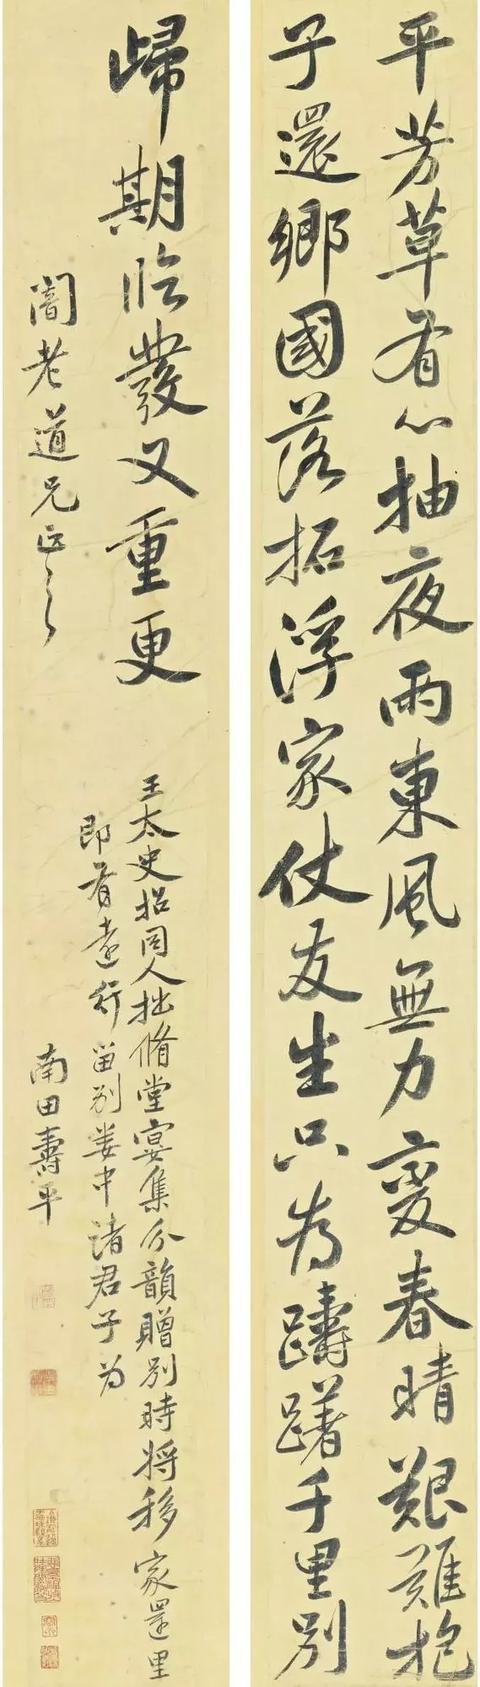 平芳草有心抽夜雨東風無力變春晴艱難抱
子還鄉國落拓浮家仗友生只為躊躇千里別
歸期臨發又重更
王太史招同人拙脩堂宴集分韻贈別時將移家還里
即有遠行留別婁中諸君子為
闇老道兄正之
南田壽平